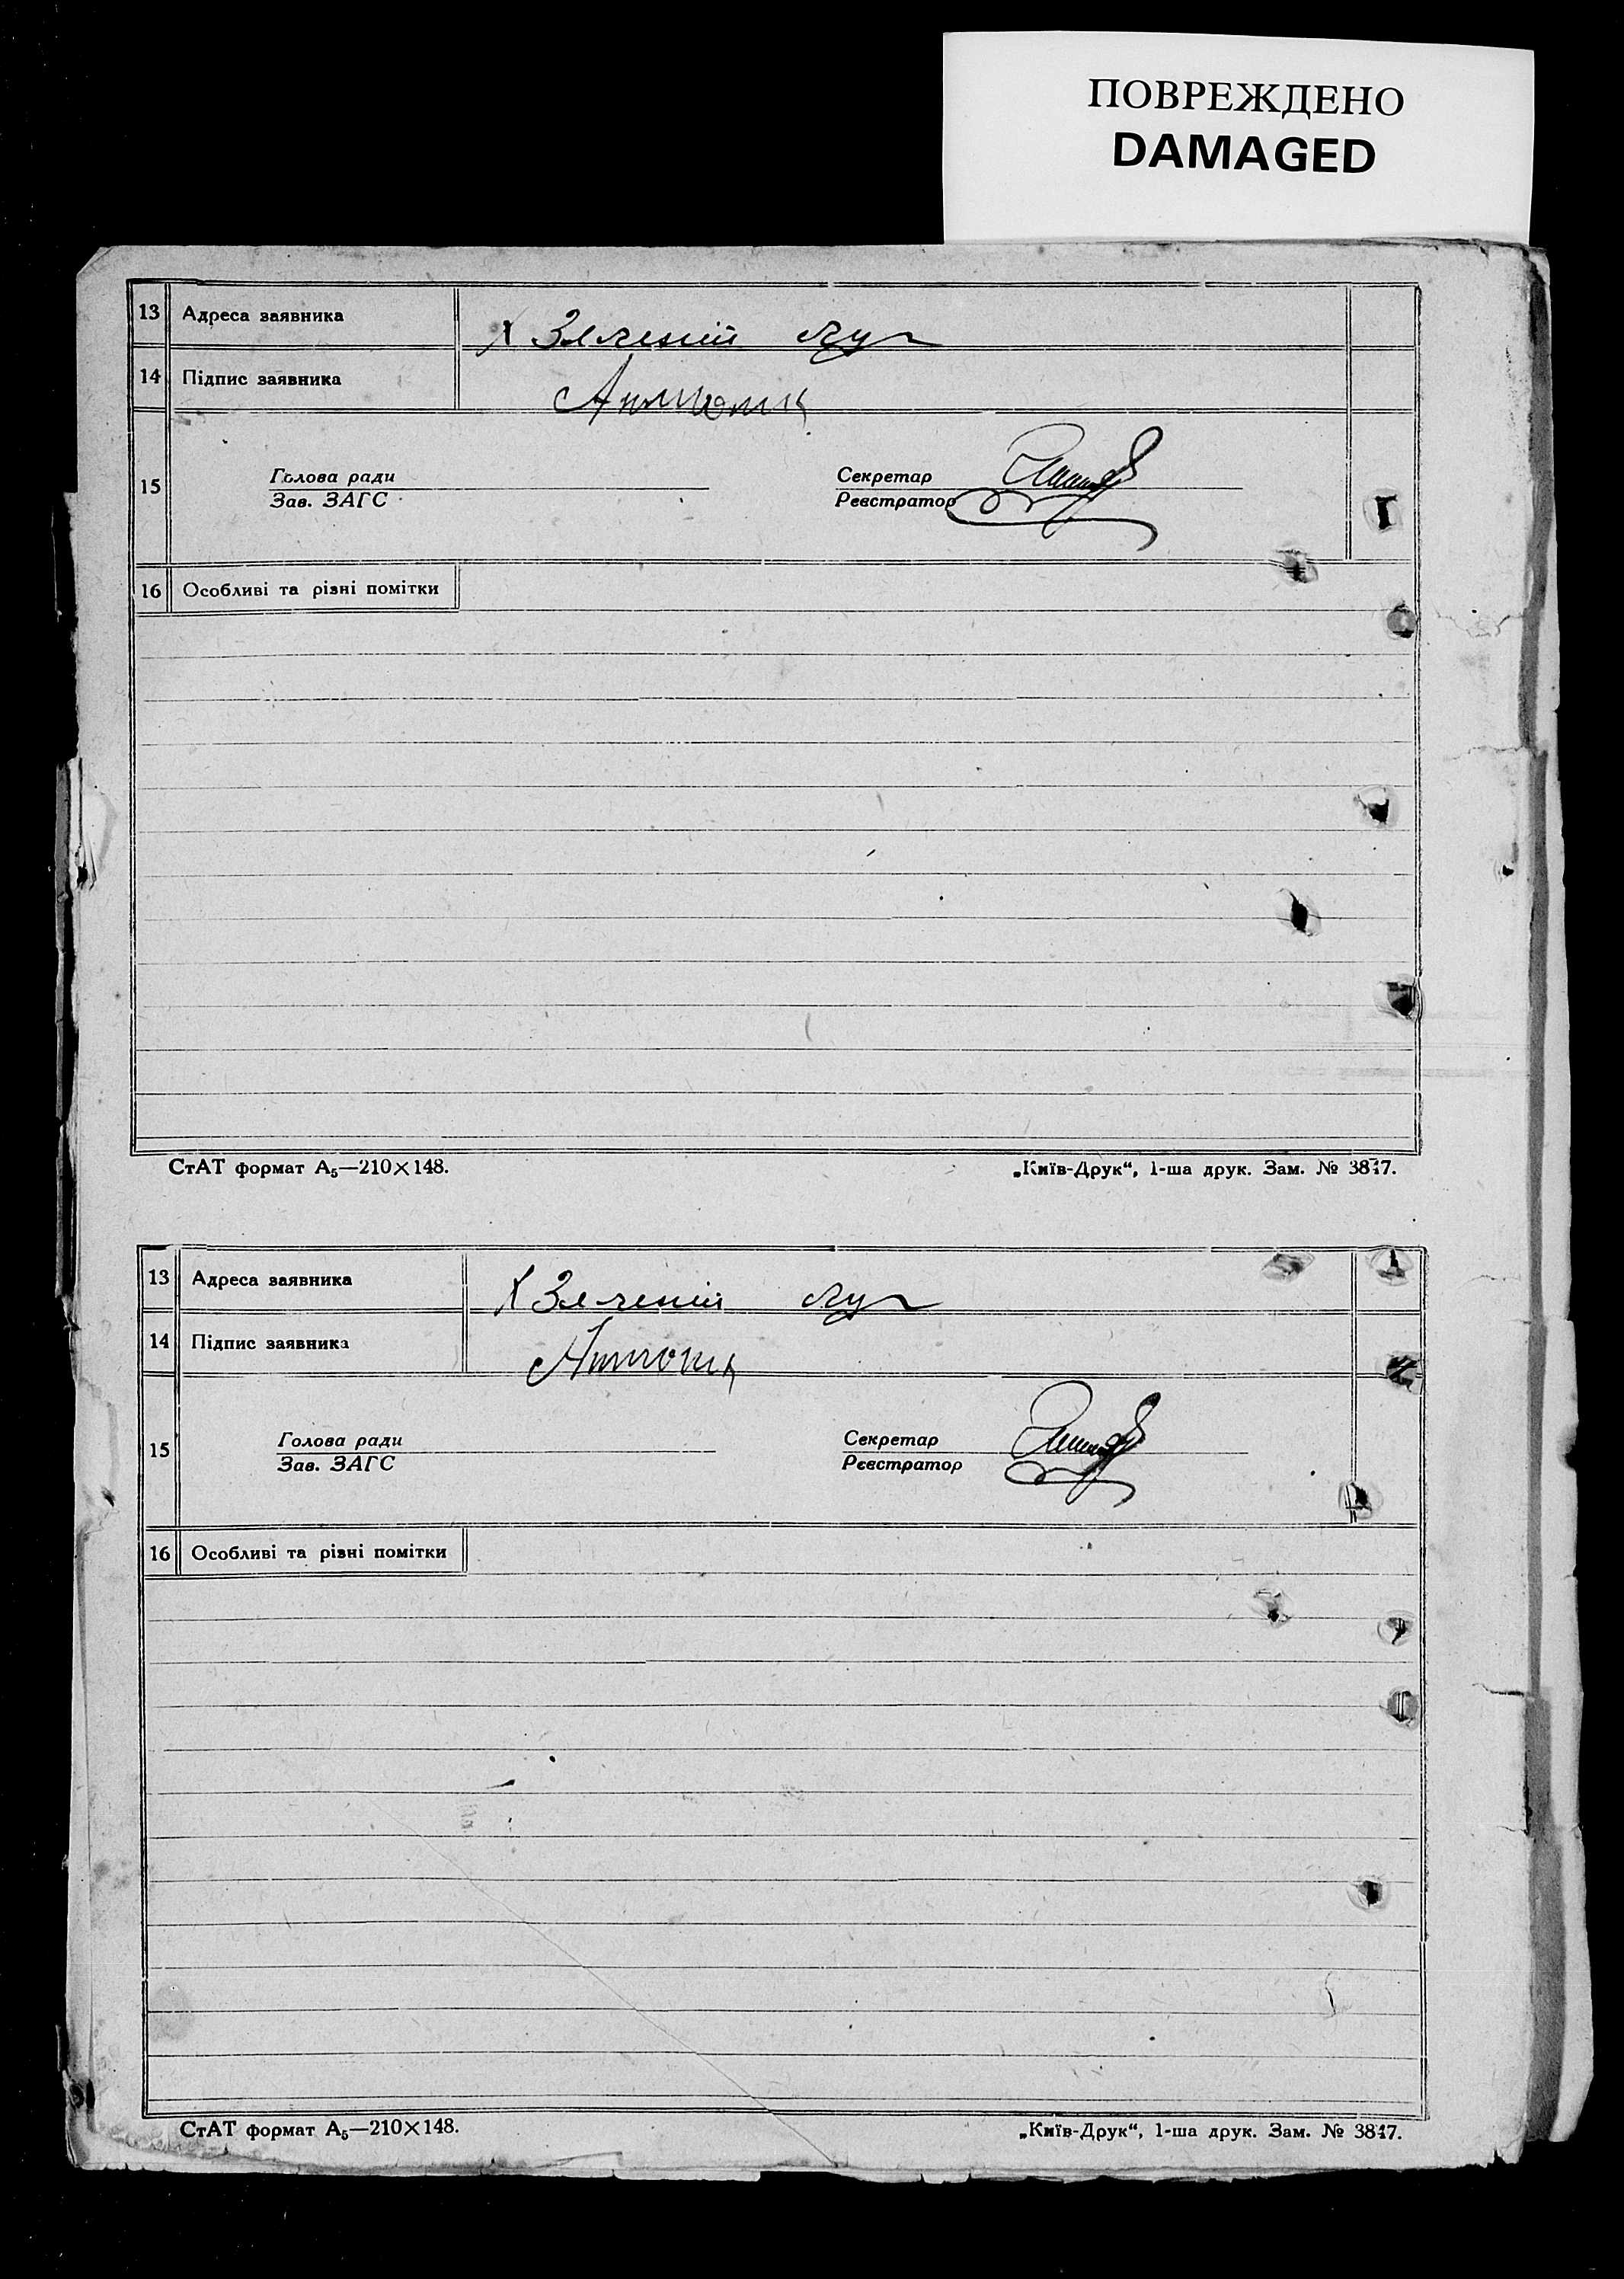 ПОВРЕЖДЕНО
DAMAGED
13 Адреса заявника х Зелений луг
14 Підпис заявника
15 Голова ради Секретар
Зав. ЗАГС Реєстратор
16 Особливі та різні помітки
СтАТ формат А₅—210×148. „Київ-Друк“, 1-ша друк. Зам. № 3847.
13 Адреса заявника х Зелений луг
14 Підпис заявника
15 Голова ради Секретар
Зав. ЗАГС Реєстратор
16 Особливі та різні помітки
СтАТ формат А₅—210×148. „Київ-Друк“, 1-ша друк. Зам. № 3847.